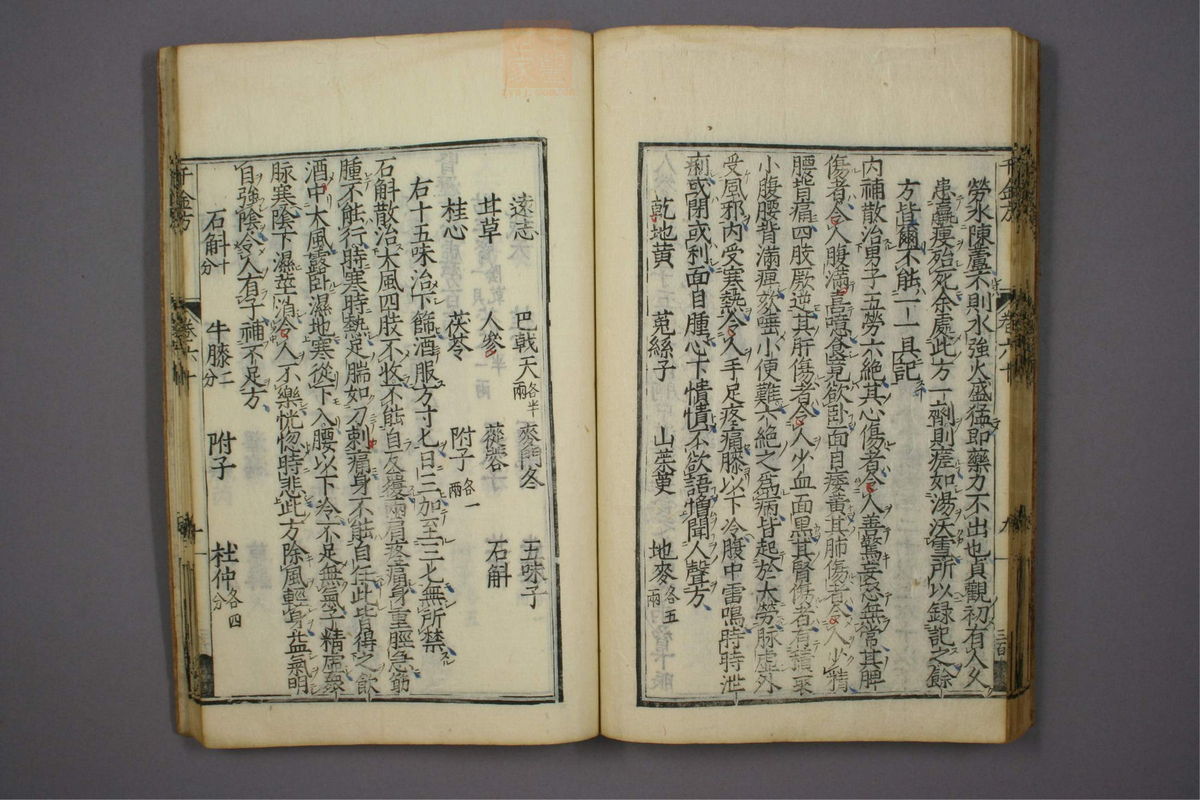 勞水陳蘆不則水強火盛猛即藥力不出也貞觀初有人久
患羸瘦殆死余處此方一劑則瘥如湯沃雪所以録記之餘
方皆爾不能一一具記
内補散治男子五勞六絶其心傷者令人善驚妄怒無常其脾
傷者令人腹滿喜噫食竟欲卧面目痿黄其肺傷者令人少精
腰背痛四肢厥逆其肝傷者令人少血面黒其腎傷者有積聚
小腹腰背滿痺欬唾小便難六絶之爲病皆起於大勞脉虚外
受風邪内受寒熱令人手足疼痛膝以下冷腹中雷鳴時時泄
痢或閉或利面目腫心下憒憒不欲語憎聞人聲方
乾地黄 菟絲子 山茱萸 地麥各五兩
遠志 巴戟天各半兩 麥門冬 五味子
甘草 人參 蓯蓉 石斛
桂心 茯苓 附子各一兩
右十五味治下篩酒服方寸匕日三加至三匕無所禁
石斛散治大風四肢不收不能自反覆兩肩疼痛身重脛急筋
腫不能行時寒時熱足腨如刀刺痛身不能自任此皆得之飲
酒中大風露卧濕地寒從下入腰以下冷不足無氣子精虚衆
脉寒陰下濕莖消令人不樂恍惚時悲此方除風輕身益氣明
目強陰令人有子補不足方
石斛十分 牛膝二分 附子 杜仲各四分
千金方
卷六十